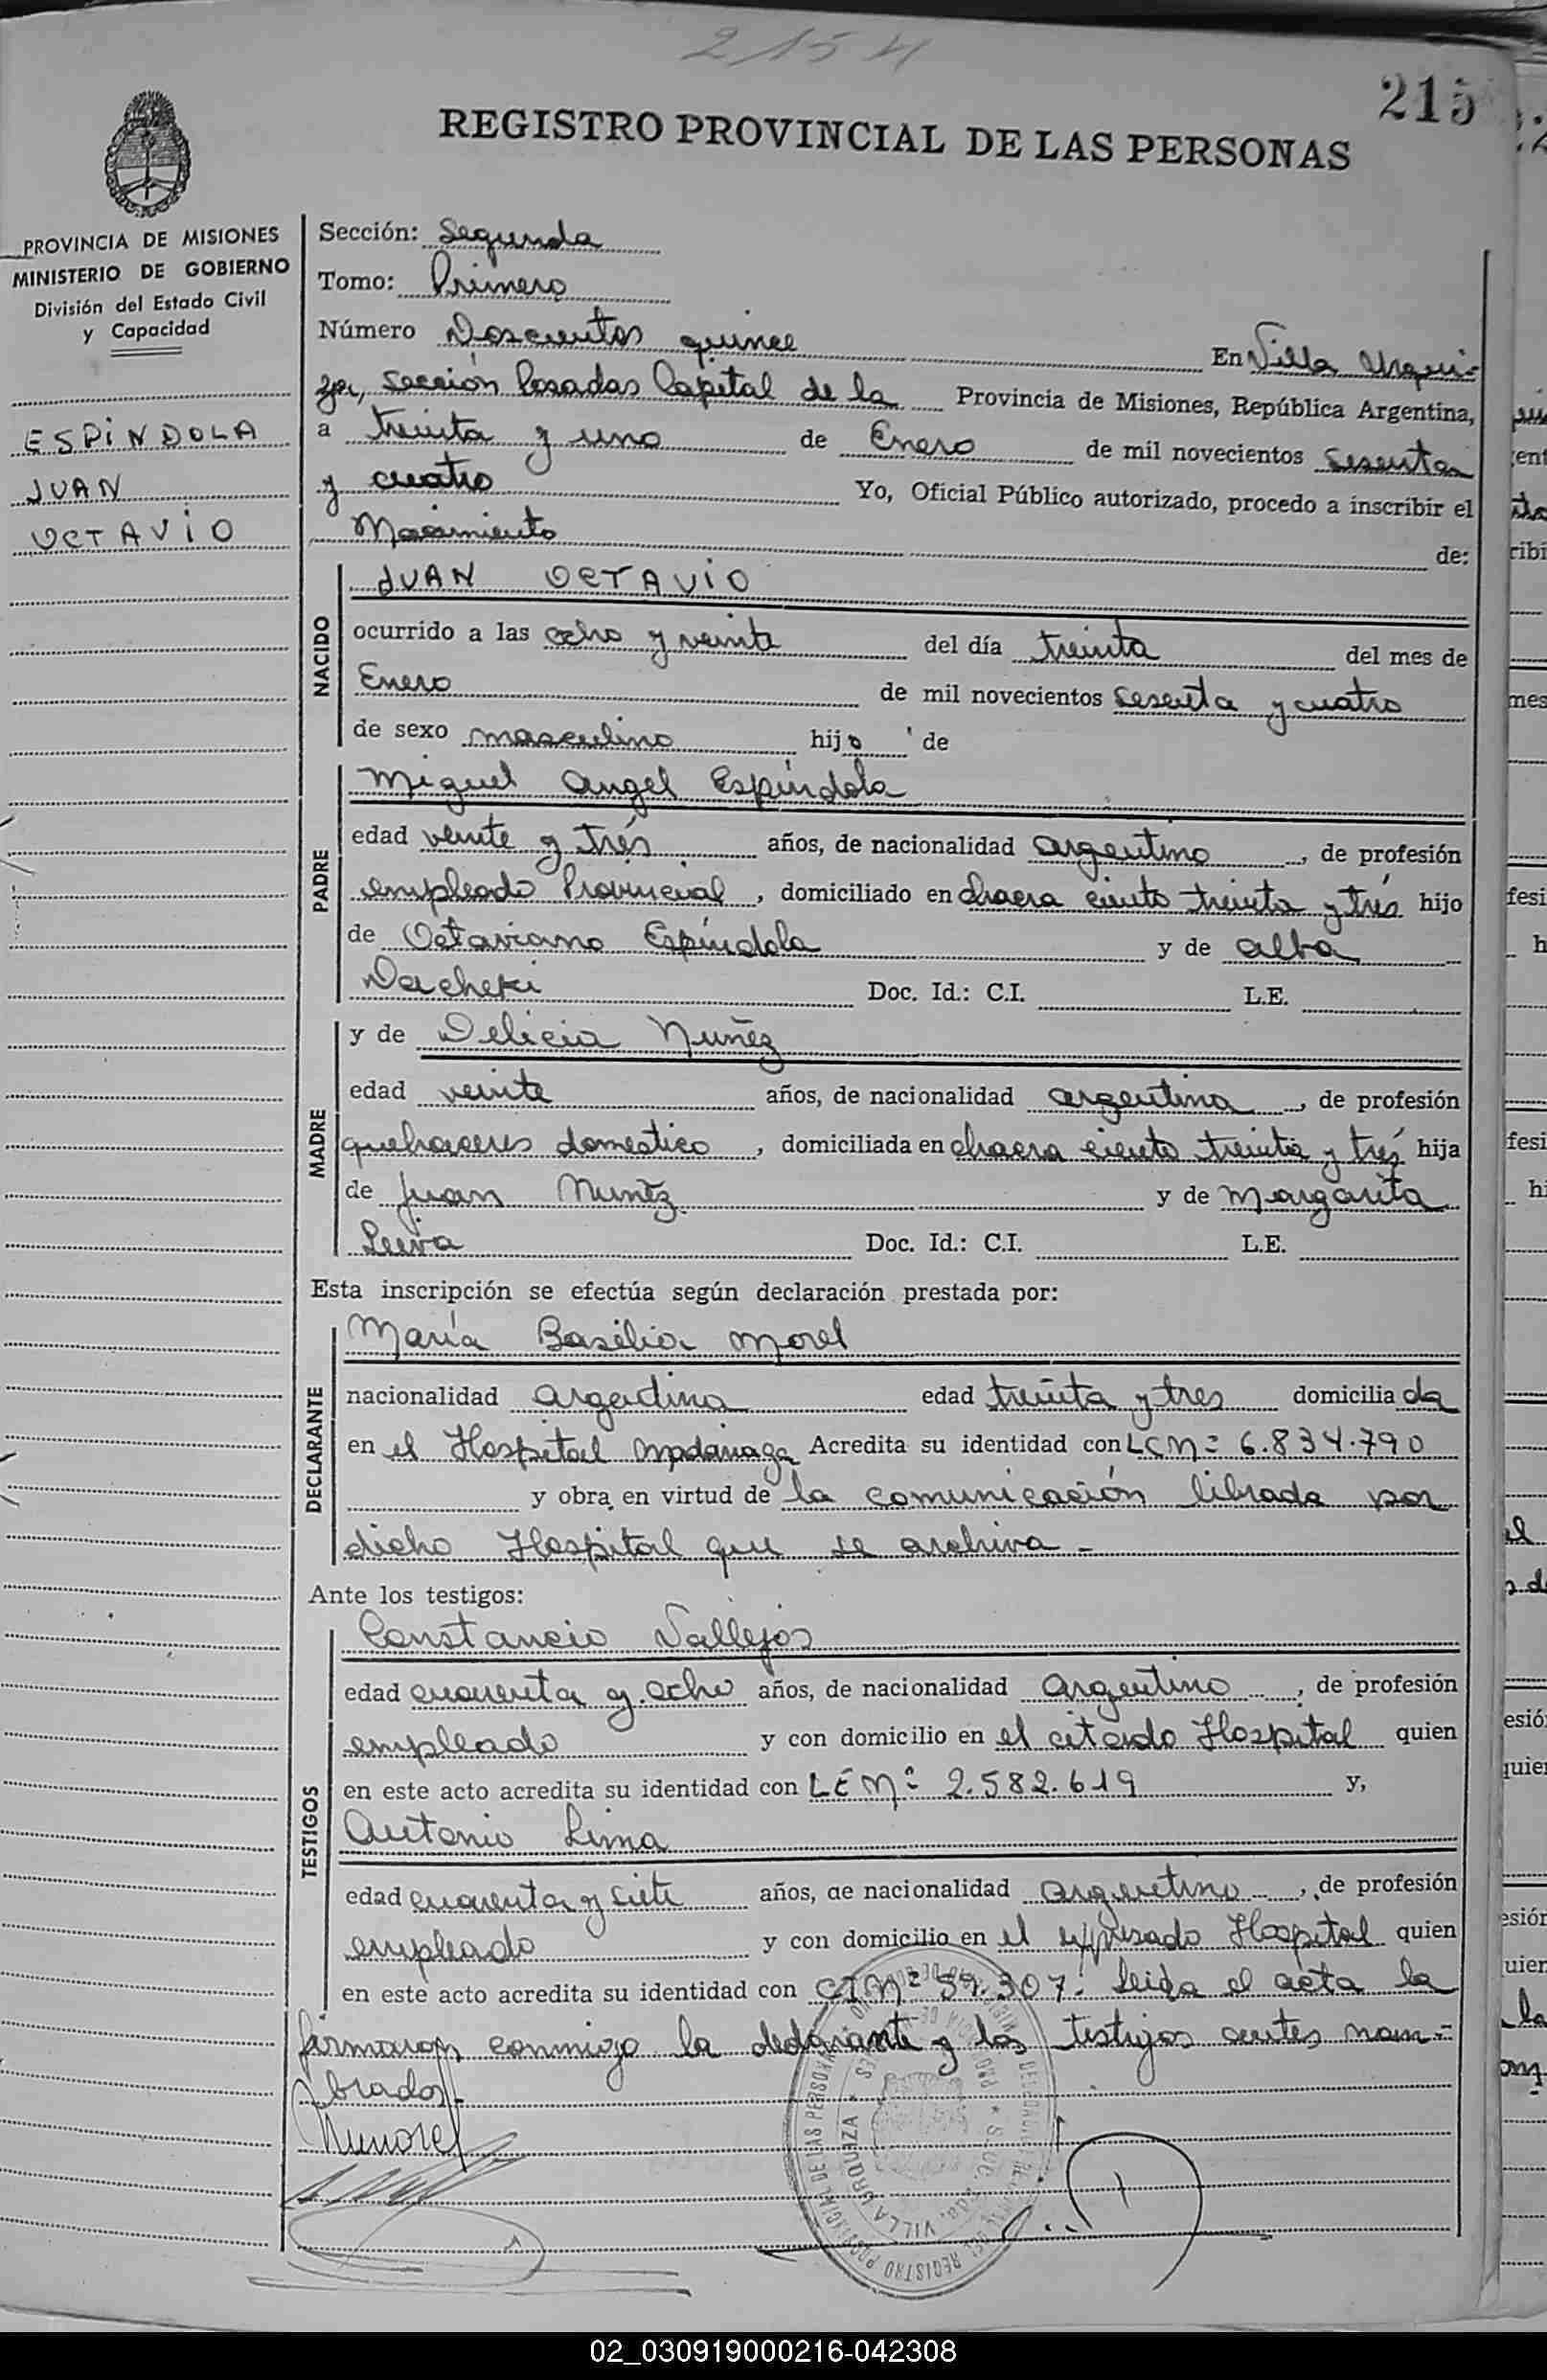 2154
215
REGISTRO PROVINCIAL DE LAS PERSONAS
PROVINCIA DE MISIONES
MINISTERIO DE GOBIERNO
División del Estado Civil
y Capacidad
ESPINDOLA
JUAN
OCTAVIO
Sección: Segunda
Tomo: Primero
Número Doscientos quince En Villa Urqui-
za, sección Posadas Capital de la Provincia de Misiones, República Argentina,
a treinta y uno de Enero de mil novecientos sesenta
y cuatro Yo, Oficial Público autorizado, procedo a inscribir el
Nacimiento de:
NACIDO
JUAN OCTAVIO
ocurrido a las ocho y veinte del día treinta del mes de
Enero de mil novecientos sesenta y cuatro
de sexo masculino hijo de
PADRE
Miguel Angel Espíndola
edad veinte y trés años, de nacionalidad argentino, de profesión
empleado Provincial, domiciliado en chacra ciento treinta y trés hijo
de Octaviano Espíndola y de Alba
Dacheki Doc. Id.: C.I. L.E.
MADRE
y de Delicia Nuñez
edad veinte años, de nacionalidad argentina, de profesión
quehaceres domestico, domiciliada en chacra ciento treinta y trés hija
de Juan Nuñez y de Margarita
Leiva Doc. Id.: C.I. L.E.
Esta inscripción se efectúa según declaración prestada por:
DECLARANTE
María Basilia Morel
nacionalidad argentina edad treinta y tres domiciliada
en el Hospital Madariaga Acredita su identidad con LCNº 6.834.790
y obra en virtud de la comunicación librada por
dicho Hospital que se archiva -
Ante los testigos:
TESTIGOS
Constancio Vallejos
edad cuarenta y ocho años, de nacionalidad argentino, de profesión
empleado y con domicilio en el citado Hospital quien
en este acto acredita su identidad con LE Nº 2.582.619 y,
Antonio Lima
edad cuarenta y siete años, de nacionalidad argentino, de profesión
empleado y con domicilio en el expresado Hospital quien
en este acto acredita su identidad con CI Nº 59.307. Leida el acta la
firmaron conmigo la declarante y los testigos antes nom-
brados.-
VILLA URQUIZA
02_030919000216-042308